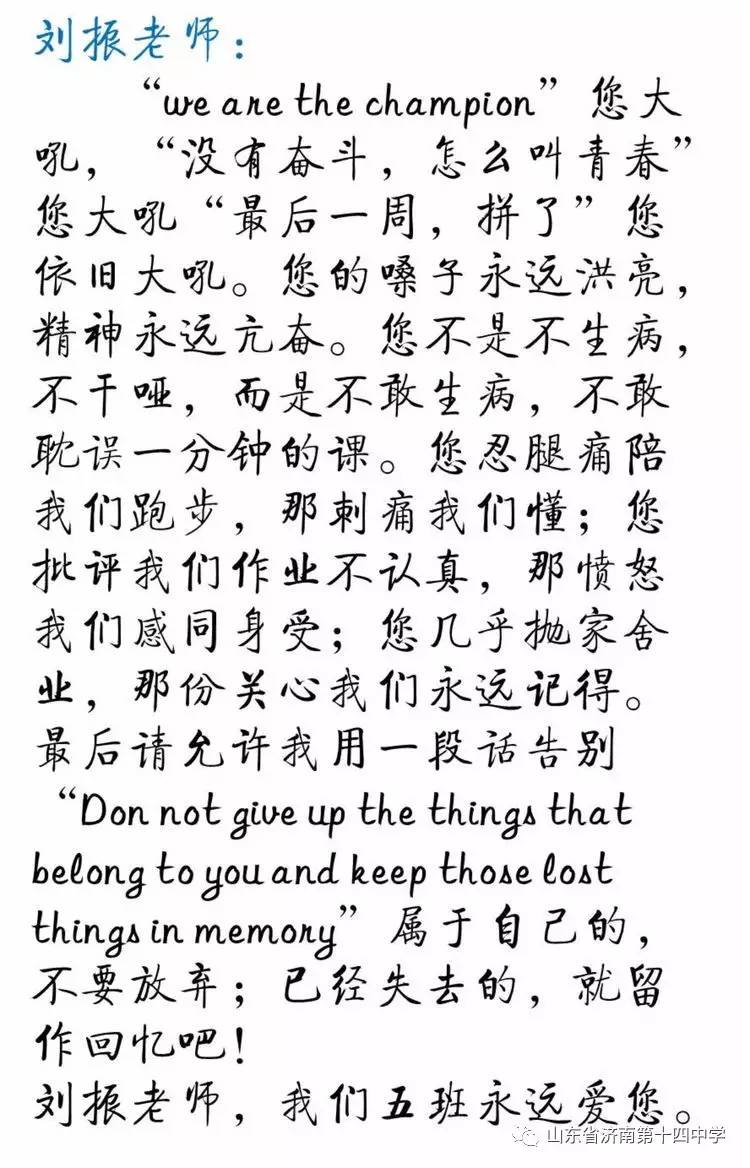 刘振老师：
“we are the champion”您大
吼，“没有奋斗，怎么叫青春”
您大吼“最后一周，拼了”您
依旧大吼。您的嗓子永远洪亮，
精神永远亢奋。您不是不生病，
不干哑，而是不敢生病，不敢
耽误一分钟的课。您忍腿痛陪
我们跑步，那刺痛我们懂；您
批评我们作业不认真，那愤怒
我们感同身受；您几乎抛家舍
业，那份关心我们永远记得。
最后请允许我用一段话告别
“Don not give up the things that
belong to you and keep those lost
things in memory”属于自己的，
不要放弃；已经失去的，就留
作回忆吧！
刘振老师，我们五班永远爱您。
山东省济南第十四中学